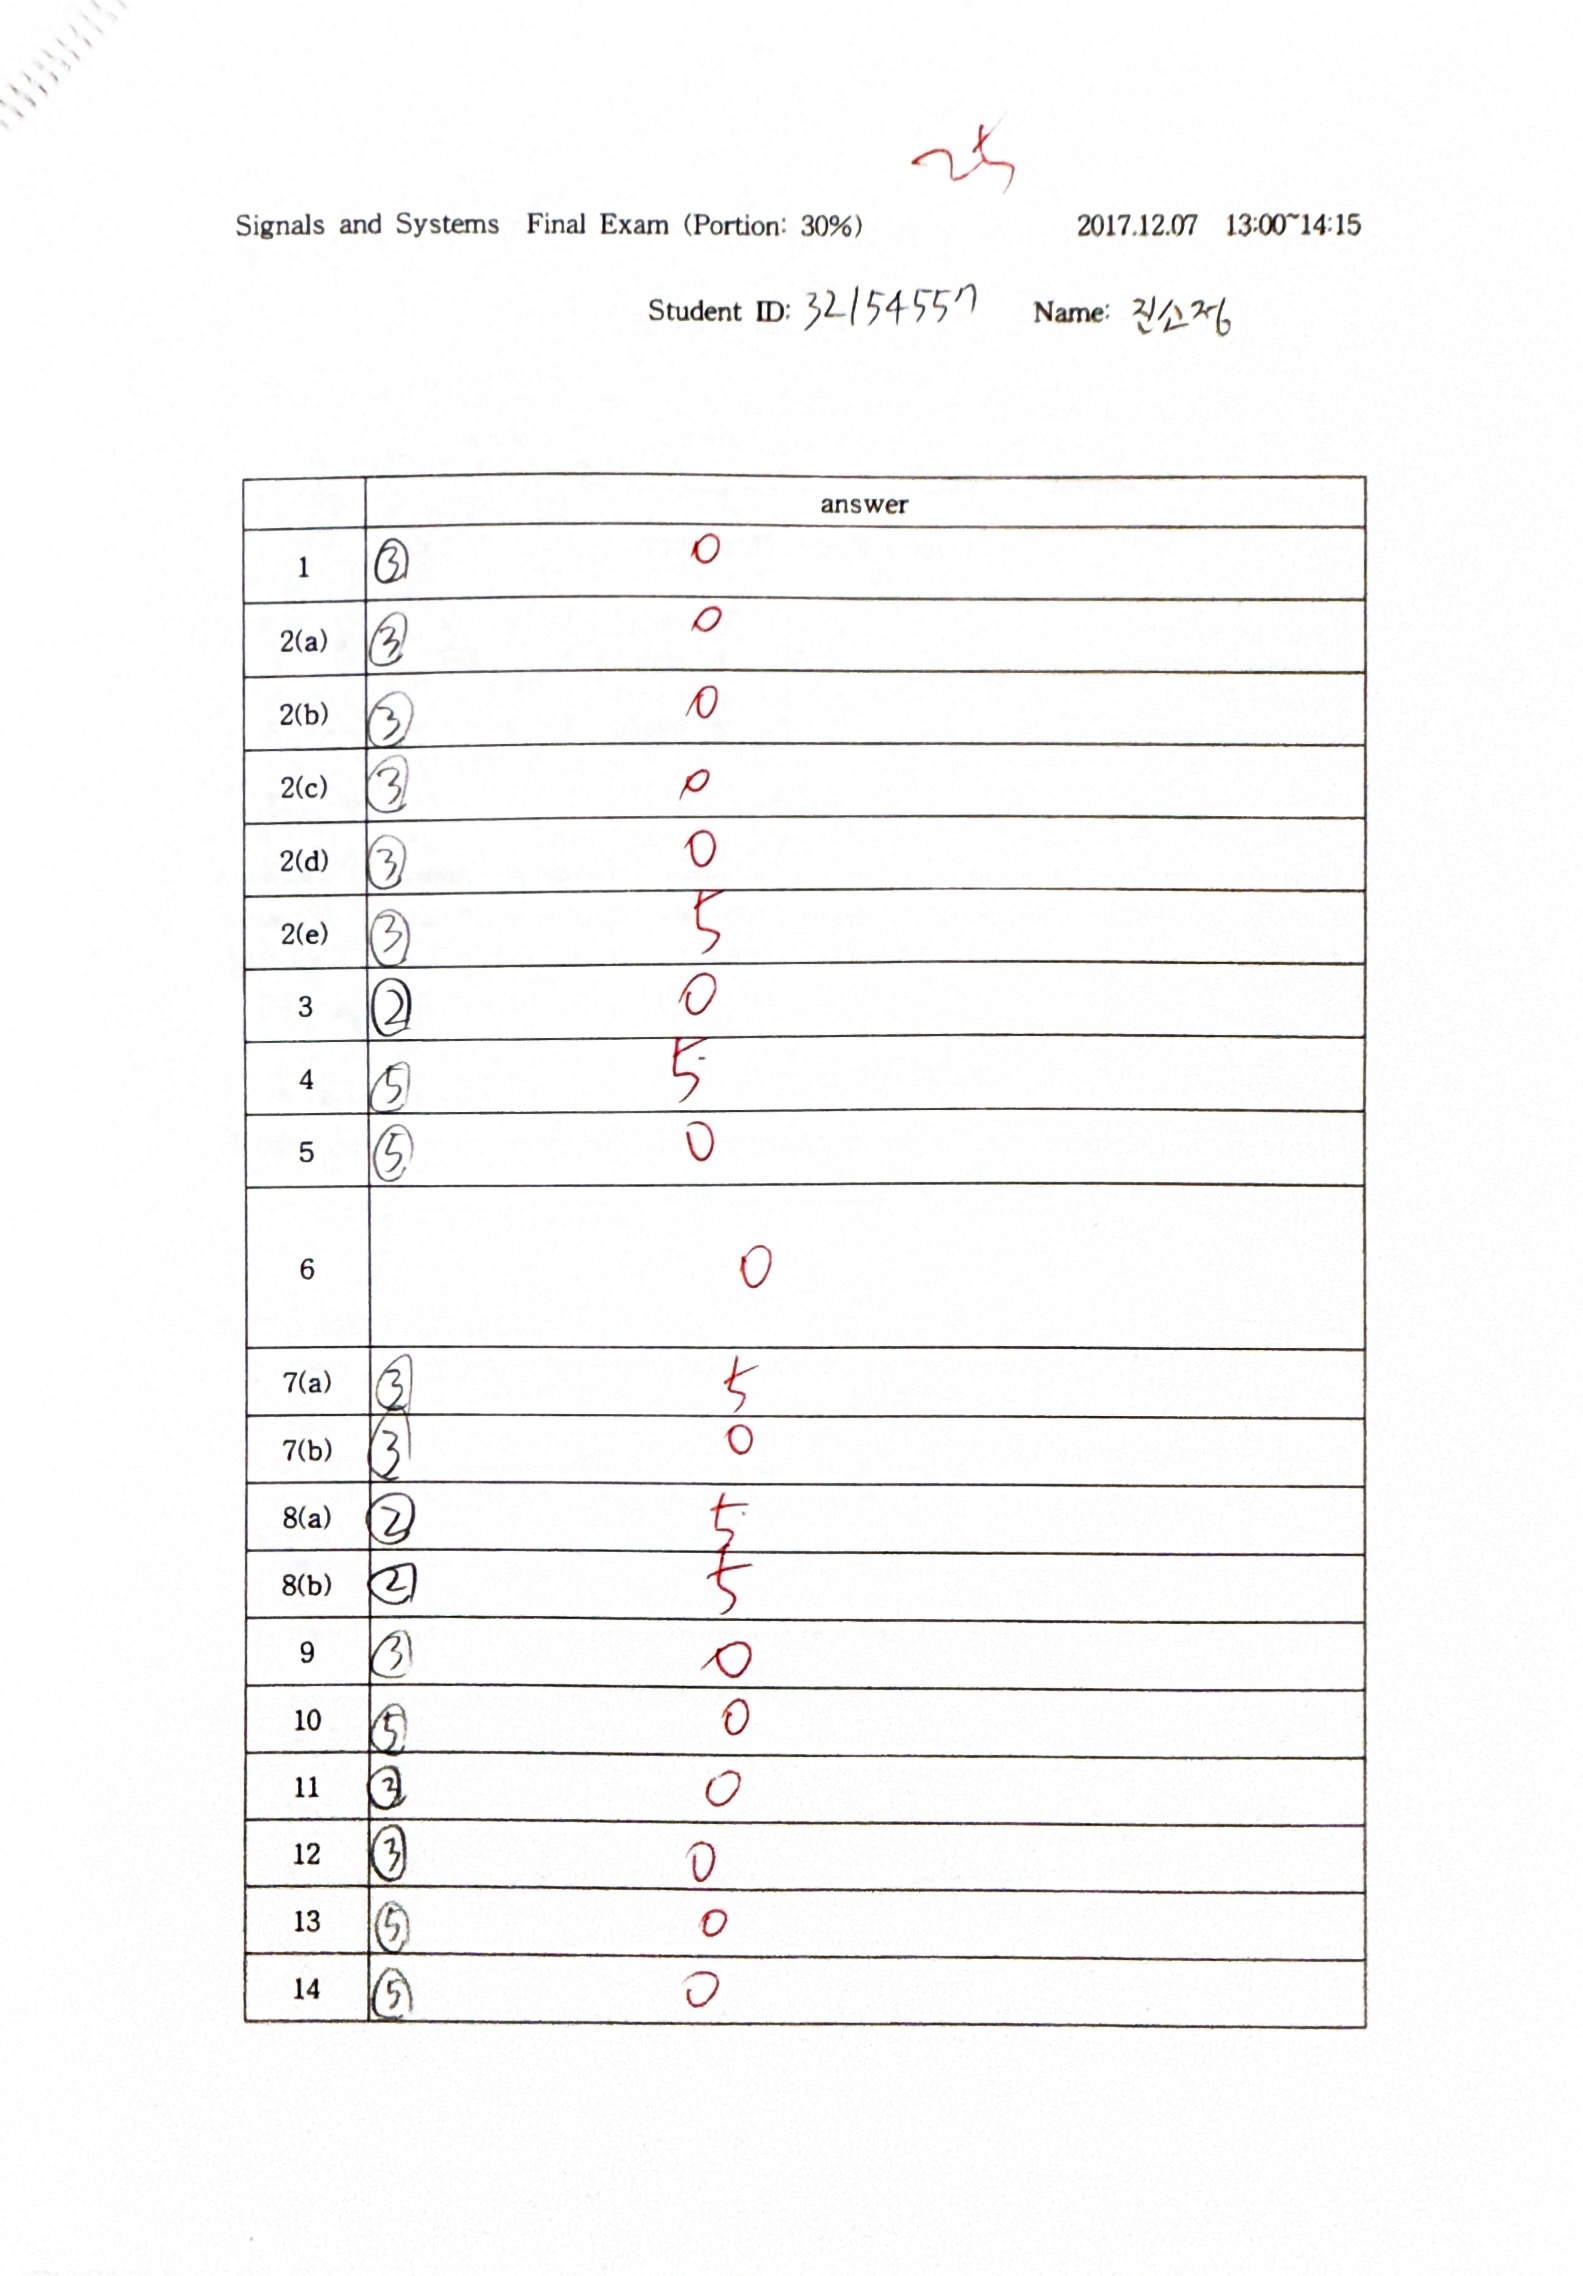 25
Signals and Systems Final Exam (Portion: 30%) 2017.12.07 13:00~14:15
Student ID: 32154557 Name: 진소정
answer
1 ③ 0
2(a) ③ 0
2(b) ③ 0
2(c) ③ 0
2(d) ③ 0
2(e) ③ 5
3 ② 0
4 ⑤ 5
5 ⑤ 0
6 0
7(a) ③ 5
7(b) ③ 0
8(a) ② 5
8(b) ② 5
9 ③ 0
10 ⑤ 0
11 0
12 ③ 0
13 ⑤ 0
14 ⑤ 0